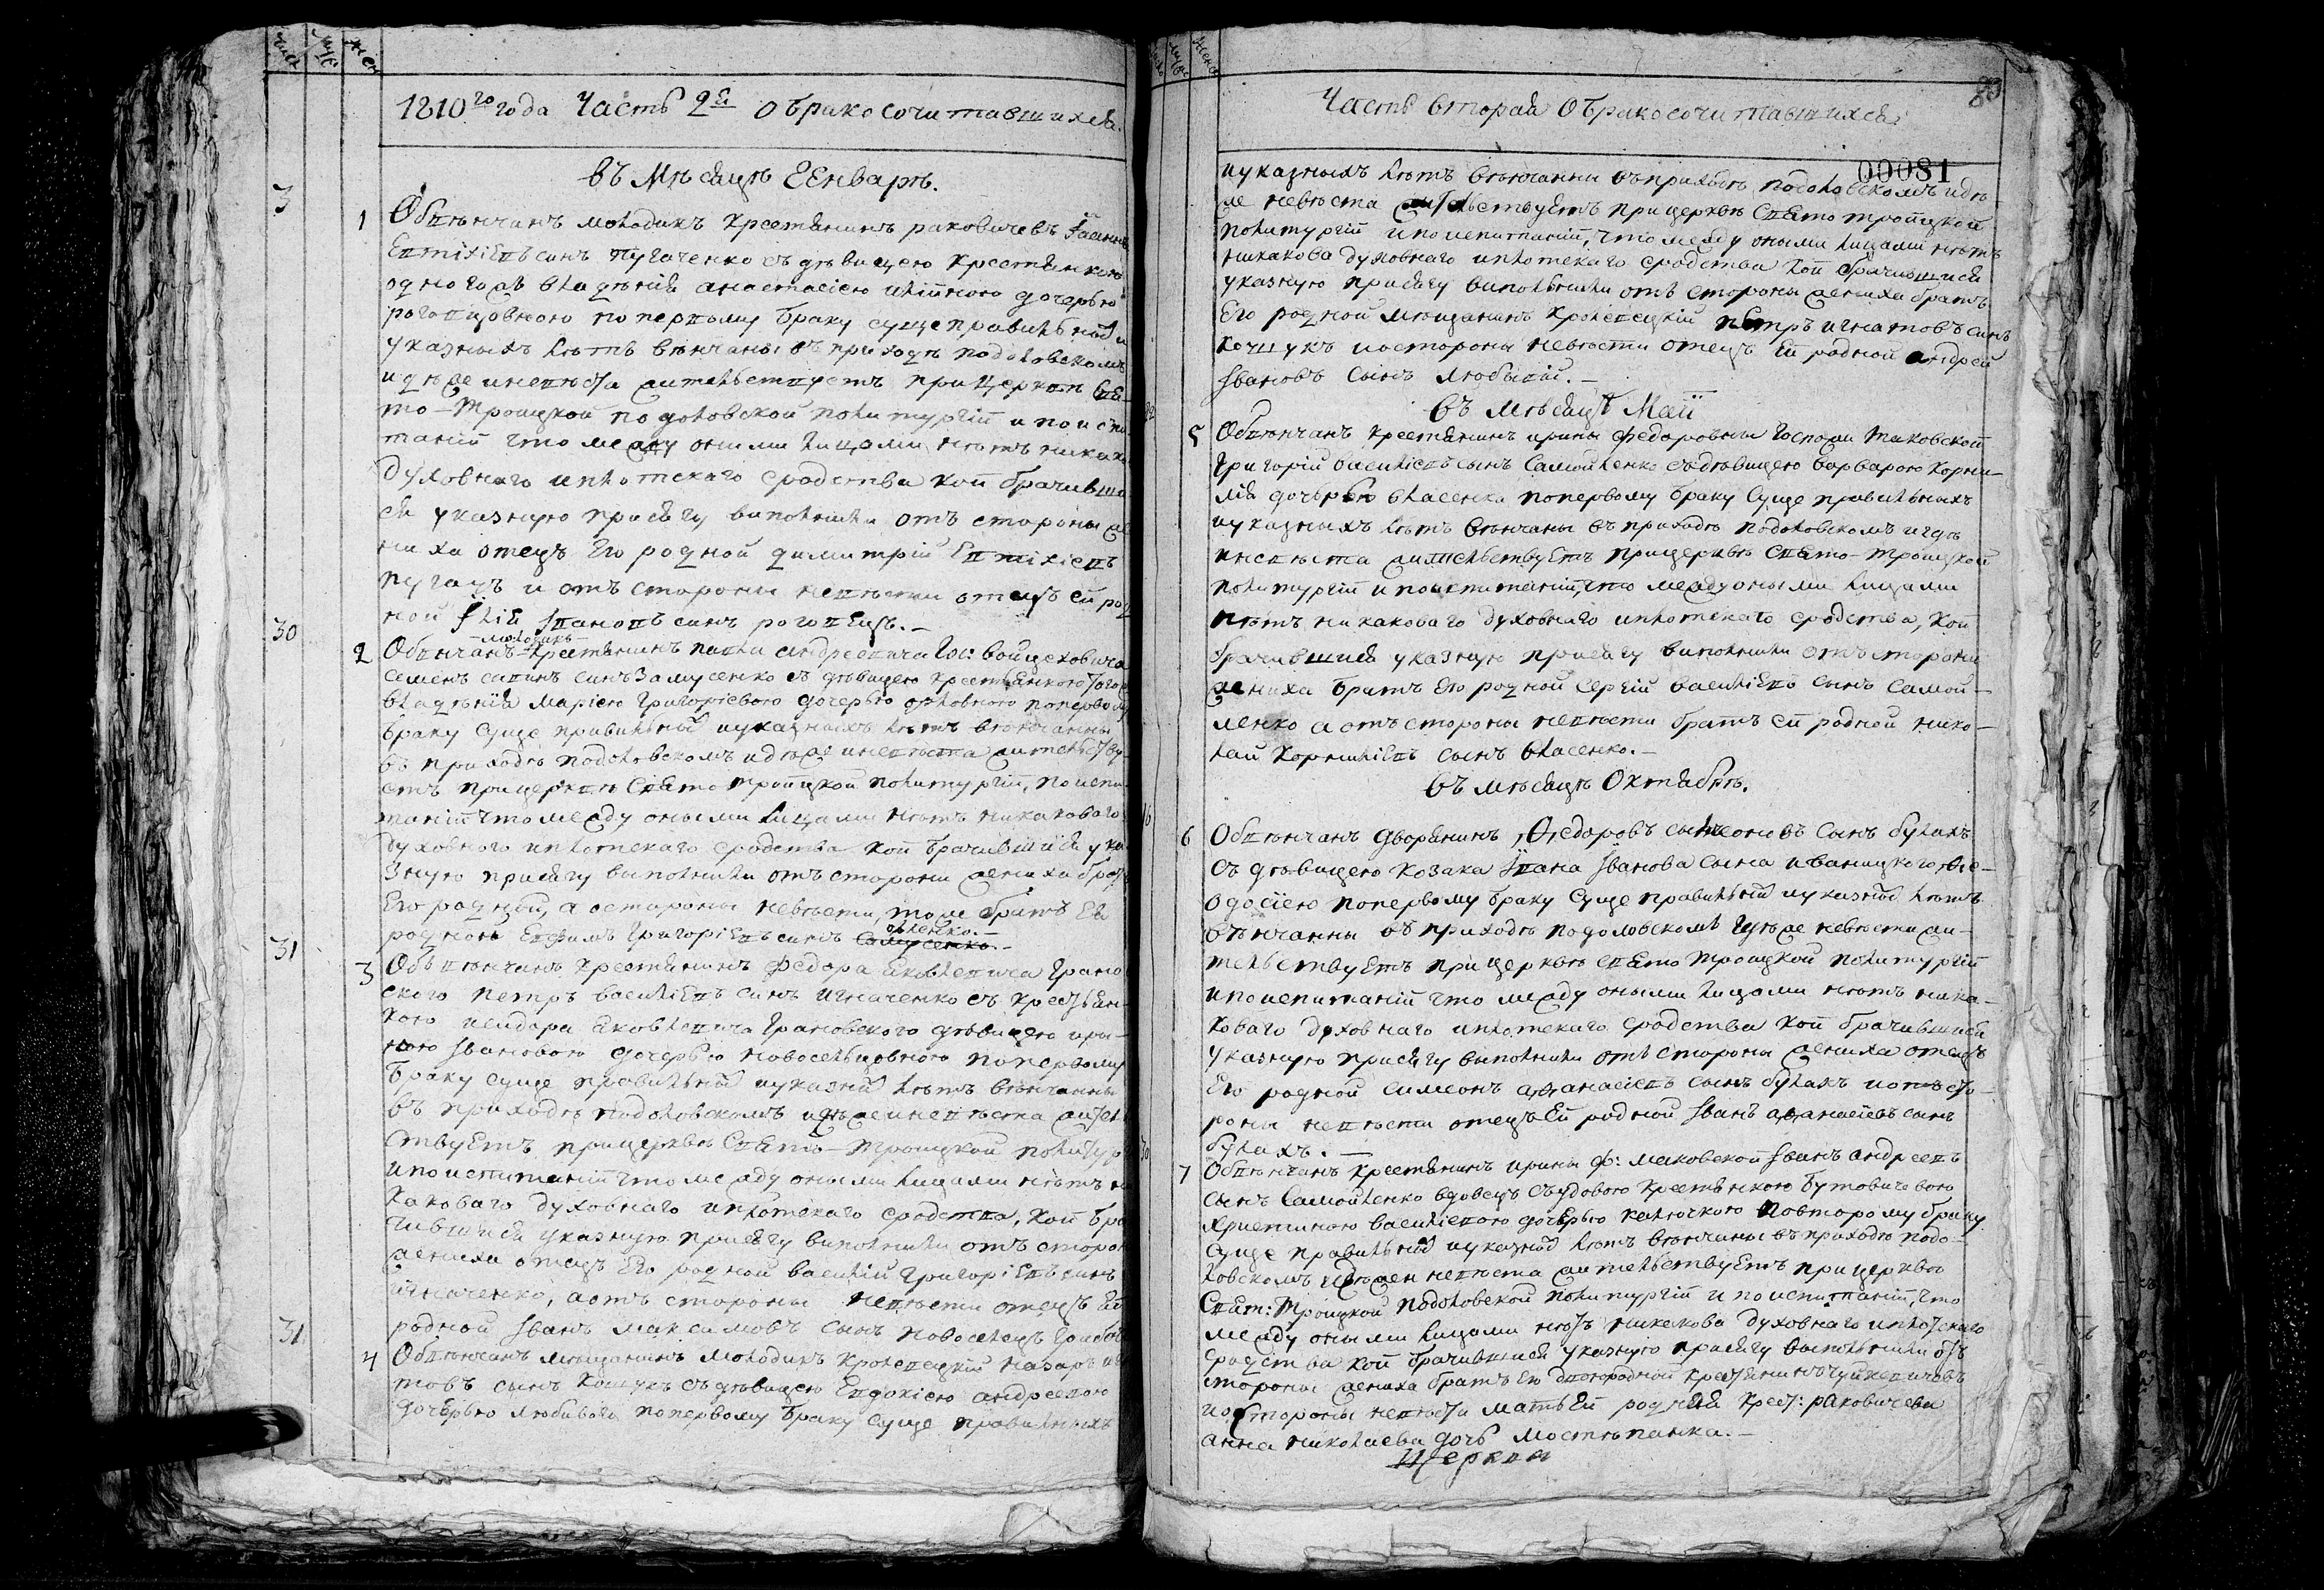 1810го года Часть 2я о бракосочитавшихся.
въ Мѣсяцѣ Генварѣ.
3
1 Обвѣнчанъ молодикъ крестянинъ раковичевъ
Евтіхіевъ синъ Пугаченко съ дѣвицею крестянкою
одногожъ владѣнія анастасіею иліиною дочерью
роговцовною по первому браку суще правильнихъ и
указныхъ лѣтъ вѣнчаны въ приходѣ подоловскомъ
идѣже иневѣста жителствуетъ при Церкви Свя-
то-Троицкой подоловской политургіи и по испи-
таніи что между оними лицами нѣтъ никако
духовнаго иплотскаго сродства кои брачивши
ся указную присягу виполнили отъ стороны же
ниха отецъ Его родной димитрій Евтіхіевъ
пугачъ и отъ стороны невѣсти отецъ ей род
ной Ілія Івановъ синъ роговецъ.–
30
молодикъ
2 Обвѣнчанъ крестянинъ павла андреевича Гос: войцеховича
семенъ савинъ синъ Замусенко съ дѣвицею крестянкою того ж
владѣнія маріею Григоріевою дочерью орловною попервому
браку суще правильныхъ иуказныхъ лѣтъ вѣнчанны
въ приходѣ подоловскомъ идѣже иневѣста жителству
етъ прицерквѣ Свято троицкой полигургіи, поиспи
таніи что между оными лицами нѣтъ никаковаго
духовного иплотскаго сродства кои брачившійся ука
зную присягу виполнили отъ стороны жениха братъ
Его родный, а остароны невѣсти, тоже братъ Ея
орленко.
родной Евфимъ Григоріевъ синъ Самусенко.–
31
3 Обвѣнчанъ крестянинъ федора яковлевича Грано
ского петръ василіевъ синъ игначенко съ крестьян-
кою исидора яковлевича Грановского дѣвицею ири-
ною Івановою дочерью новоселцовною попервому
браку суще правилныхъ иуказныхъ лѣтъ вѣнчанны
въ приходѣ подоловскомъ идѣже иневѣста жител
ствуетъ прицерквѣ Свято-троицкой политур
ипоиспитаніи что между оными лицами нѣтъ ни
каковаго духовнаго иплотскаго сродства, кои бра
чившійся указную присягу виполнили отъ сторон
жениха отецъ Его родной василій Григоріевъ синъ
игначенко, аотъ стороны невѣсти отецъ Ей
родной Іванъ максимовъ сынъ новоселецъ
31
4 Обвѣнчанъ мѣщанинъ молодикъ кролевецкій назаръ игна
товъ сынъ Кощукъ съ дѣвицею Евдокіею андреевою
дочерью любивою попервому браку суще правилныхъ
Часть вторая о бракосочитавшихся.
83
00081
иуказныхъ лѣтъ вѣнчанни въприходѣ подоловскомъ идѣ
же невѣста жительствуетъ прицерквѣ Свято троицкой
политургіи и поиспитаніи, что между оными лицами нѣтъ
никакова духовнаго иплотскаго сродства кои брачившися
указную присягу виполнили отъ стороны жениха братъ
Его родной мѣщанинъ Кролевецкій петръ игнатовъ синъ
Кощукъ иостороны невѣсти отецъ Ей родной андрей
Івановъ сынъ любивій.–
въ мѣсяцѣ Маіи
5 Обвѣнчанъ крестянинъ ирины федоровны Госпожи маковской
Григорій василіевъ сынъ Самойленко съдѣвицею варварою корни-
лія дочерью власенка попервому браку суще правильныхъ
иуказныхъ лѣтъ вѣнчаны въ приходѣ подоловскомъ игдѣ
иневѣста жительствуетъ прицерквѣ Свято-троицкой
политургіи ипоиспитаніи, что между оными лицами
нѣтъ никаковаго духовнаго иплотскаго сродства, кои
брачившися указную присягу виполнили отъ стороны
жениха братъ Его родной Сергій василіевъ сынъ Самой-
ленко аотъ стороны невѣсти братъ ей родной нико-
лай корниліевъ сынъ власенко.–
въ мѣсяцѣ Октябрѣ.
16
6 Обвѣнчанъ дворянинъ Ѳедоровъ симеоновъ сынъ булахъ
съ дѣвицею козака Івана Іванова сына иваницкого Ѳе-
одосіею попервому браку суще правилныхъ иуказныхъ лѣтъ
вѣнчанны въ приходѣ подоловскомъ гдѣже невѣсти жи-
тельствуетъ прицерквѣ свято троицкой политургіи
ипоиспитаніи что между оными лицами нѣтъ ника-
коваго духовнаго иплотскаго сродства кои брачившися
указную присягу выполнили отъ стороны жениха отецъ
Его родной симеонъ аѳанасіевъ сынъ булахъ иотъ сто-
роны невѣсти отецъ Ей родной Іванъ аѳанасіевъ сынъ
булахъ.–
30
7 Обвѣнчанъ крестянинъ ирины ф: маковской Іванъ андреевъ
сынъ Самойленко вдовецъ съудовою крестянкою бутовичевою
христиною василіевою дочерью калюжною повторому браку
суще правильныхъ иуказныхъ лѣтъ вѣнчаны въприходѣ подо-
ловскомъ идѣжеи невѣста жительствуетъ прицерквѣ
Свят: троицкой подоловской политургіи и поиспитаніи, что
между оными лицами нѣтъ никакова духовнаго иплотскаго
сродства кои брачившися указную присягу выполнили отъ
стороны жениха братъ Его двоюродной крестянинъ
иостороны невѣсти мать Ей родная Крест: раковичева
анна николаева дочь мостѣпанка.–
Церкви